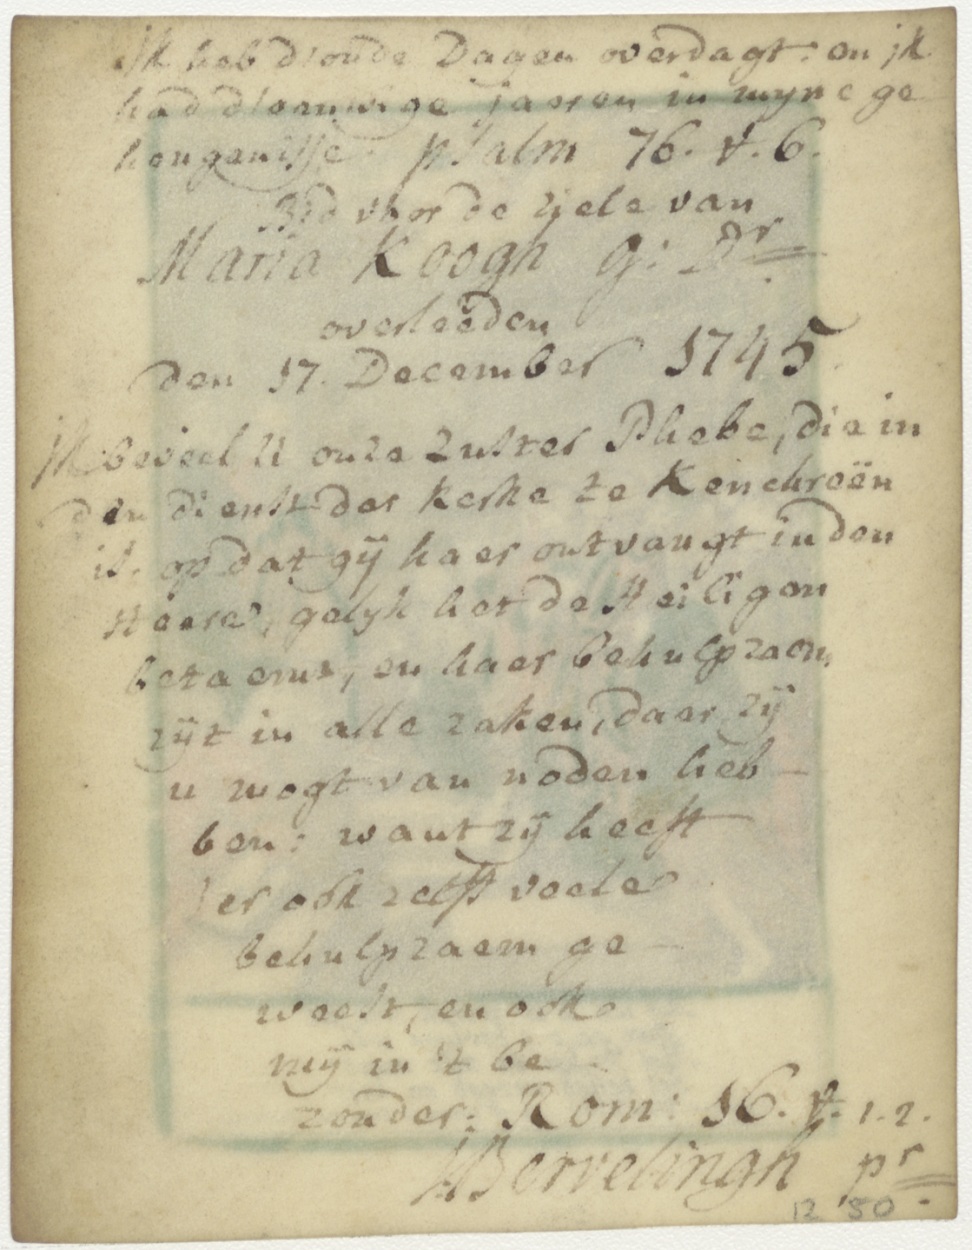 Ik heb d'oude Dagen overdagt: en ik
had d'eeuwige jaaren in myne ge
heugenisse. psalm 76. v. 6.
Bid voor de ziele van
Maria Koogh g: Dr
overleeden
den 17. December 1745
Ik beveel U onze Zuster Phebe, die in
den dienst der kerke te Kenchreën
is, op dat gÿ haer ontvangt in den
Heere, gelyk het de Heiligen
betaemt, en haer behulpzaem
zÿt in alle zaken, daer zÿ
u mogt van noden heb-
ben: want zÿ heeft
er ook zelfs veele
behulpzaem ge-
weest, en ook
mÿ in 't be
zonder: Rom: 16. v. 1.2.
HBervelingh pr
12 50